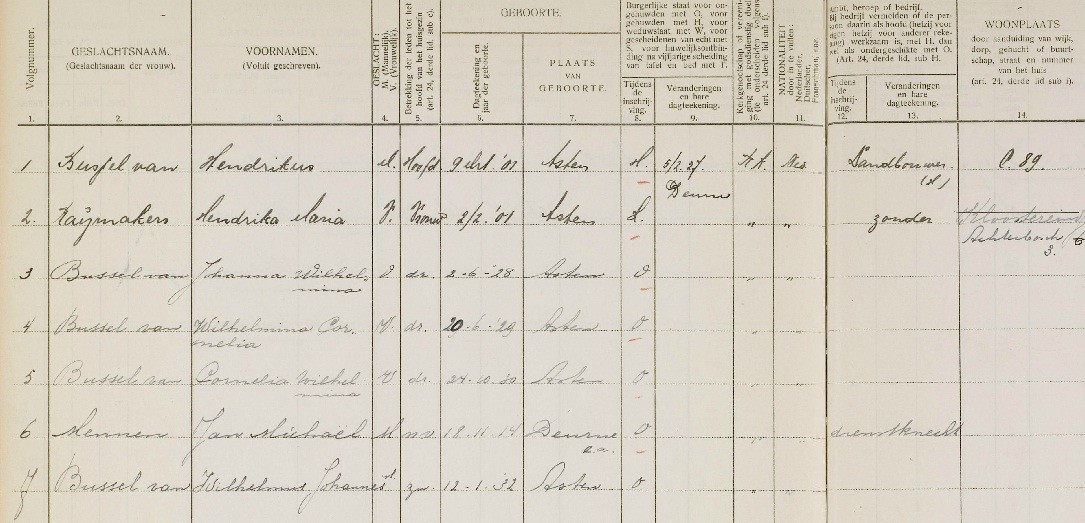 Volgnummer.
GESLACHTSNAAM.
(Geslachtsnaam der vrouw).
VOORNAMEN.
(Voluit geschreven).
GESLACHT:
M. (Mannelijk).
V. (Vrouwelijk).
Betrekking der leden tot het
hoofd van het huisgezin
(art. 24, derde lid, sub c).
GEBOORTE.
Dagteekening en
jaar der geboorte.
PLAATS
VAN
GEBOORTE.
Burgerlijke staat voor on-
gehuwden met O, voor
gehuwden met H, voor
weduwstaat met W, voor
gescheidenen van echt met
S, voor huwelijksontbin-
ding na vijfjarige scheiding
van tafel en bed met F.
Tijdens
de
inschrij-
ving.
Veranderingen
en hare
dagteekening.
Kerkgenootschap of vereeni-
ging met godsdienstig doel
art. 24 derde lid sub f).
NATIONALITEIT
door in te vullen:
Nederlander,
Duitscher,
Franschman, enz.
Ambt, beroep of bedrijf.
Bij bedrijf vermelden of de per-
soon daarin als hoofd (hetzij voor
eigen hetzij voor anderer reke-
ning) werkzaam is, met H, dan
wel als ondergeschikte met O.
(Art. 24, derde lid, sub H.
Tijdens
de
inschrij-
ving.
Veranderingen
en hare
dagteekening.
WOONPLAATS
door aanduiding van wijk,
dorp, gehucht of buurt-
schap, straat en nummer
van het huis
(art. 24, derde lid sub i).
1. 2. 3. 4. 5. 6. 7. 8. 9. 10. 11. 12. 13. 14.
1 Bussel van Hendrikus M. Hoofd 9 Oct. '01 Asten H. 5/2.27. Deurne Ned. Landbouwer. (H) C. 89.
2. Raijmakers Hendrika Maria V. Vrouw 2/2.'01 Asten H. " " zonder Kloostereind
Achterbosch 6
3.
3 Bussel van Johanna Wilhel-
mina V. dr. 2-6-'28 Asten O " "
4 Bussel van Wilhelmina Cor-
nelia V. dr. 20-6-'29 Asten O " "
5 Bussel van Cornelia Wilhel
mina V dr. 24-10-30 Asten O " "
6 Mennen Jan Michaël M nv. 18-11-14 Deurne
e.a. O " " dienstknecht
7 Bussel van Wilhelmus Johannes M zn. 12-1-32 Asten O " "